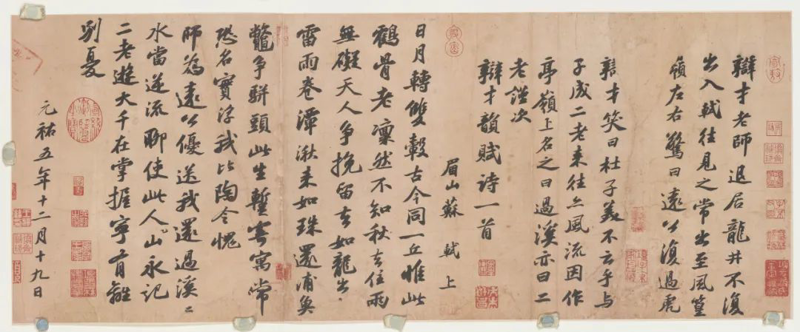 辯才老師退居龍井不復
出入軾往見之常出至風篁
嶺左右驚曰遠公復過虎
辯才笑曰杜子美不云乎與
子成二老來往亦風流因作
亭嶺上名之曰過溪亦曰二
老謹次
辯才韻賦詩一首
眉山蘇軾上
日月轉雙轂古今同一丘惟此
鶴骨老凜然不知秋去住兩
無礙天人爭挽留去如龍出
雷雨卷潭湫來如珠還浦魚
鱉爭駢頭此生蹔寄寓常
恐名實浮我比陶令愧
師為遠公優送我還過溪〻
水當逐流聊使此人山永記
二老遊大千在掌握寧有離
別憂
元祐五年十二月十九日